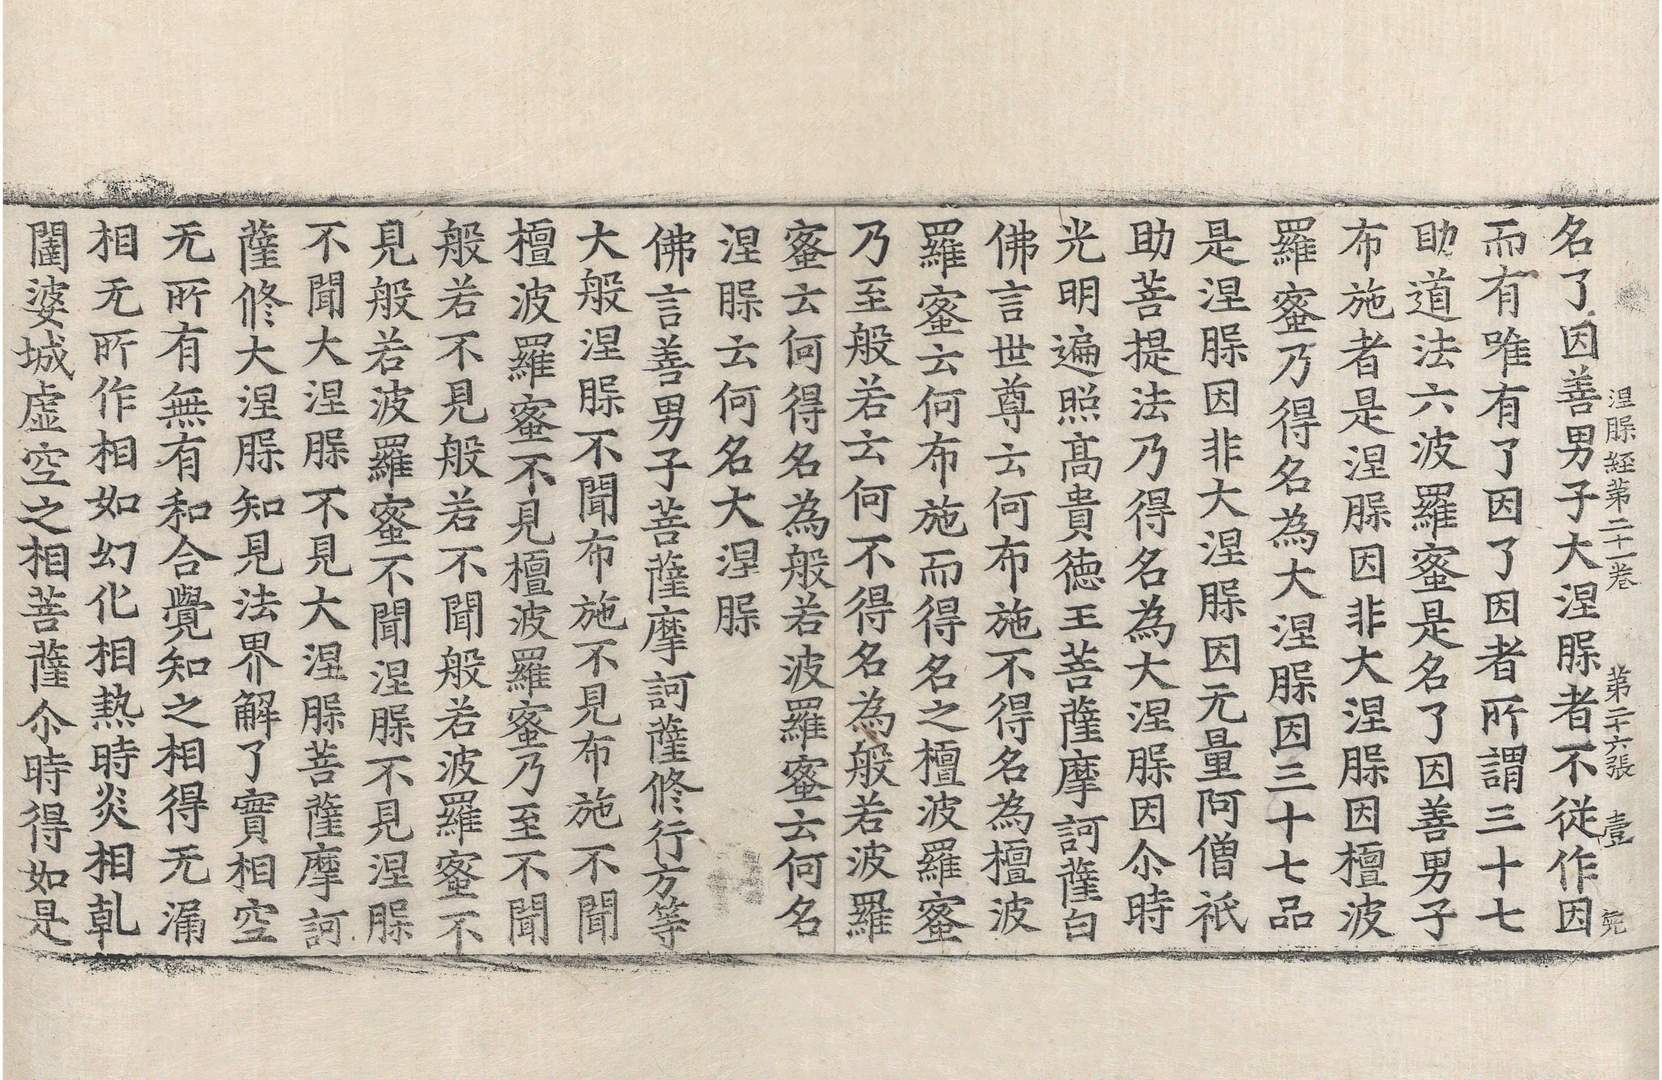 涅槃經第二十一卷 第二十六張 壹
名了因善男子大涅槃者不從作因
而有唯有了因了因者所謂三十七
助道法六波羅蜜是名了因善男子
布施者是涅槃因非大涅槃因檀波
羅蜜乃得名為大涅槃因三十七品
是涅槃因非大涅槃因无量阿僧祇
助菩提法乃得名為大涅槃因尒時
光明遍照髙貴徳王菩薩摩訶薩白
佛言世尊云何布施不得名為檀波
羅蜜云何布施而得名之檀波羅蜜
乃至般若云何不得名為般若波羅
蜜云何得名為般若波羅蜜云何名
涅槃云何名大涅槃
佛言善男子菩薩摩訶薩修行方等
大般涅槃不聞布施不見布施不聞
檀波羅蜜不見檀波羅蜜乃至不聞
般若不見般若不聞般若波羅蜜不
見般若波羅蜜不聞涅槃不見涅槃
不聞大涅槃不見大涅槃菩薩摩訶
薩修大涅槃知見法界解了實相空
无所有無有和合覺知之相得无漏
相无所作相如幻化相熱時炎相乹
闥婆城虛空之相菩薩尒時得如是